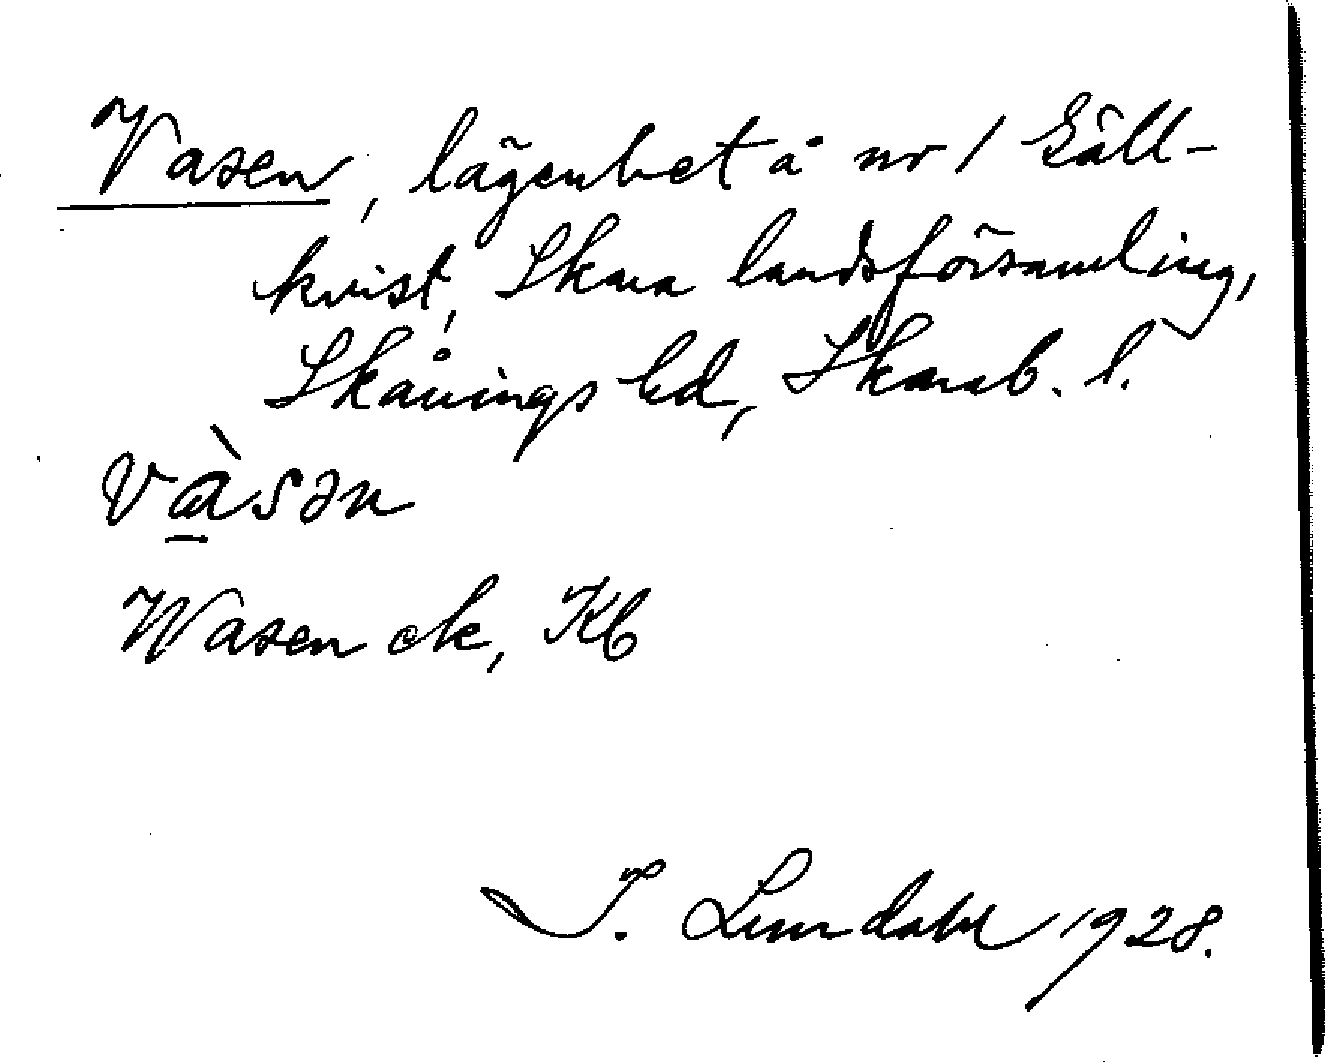 Vasen, lägenhet å nr 1 Gäll-
kvist, Skara landsförsamling,
Skånings hd, Skarab. l.
và̱sən
Wasen ek, Kb
I. Lundahl 1928.